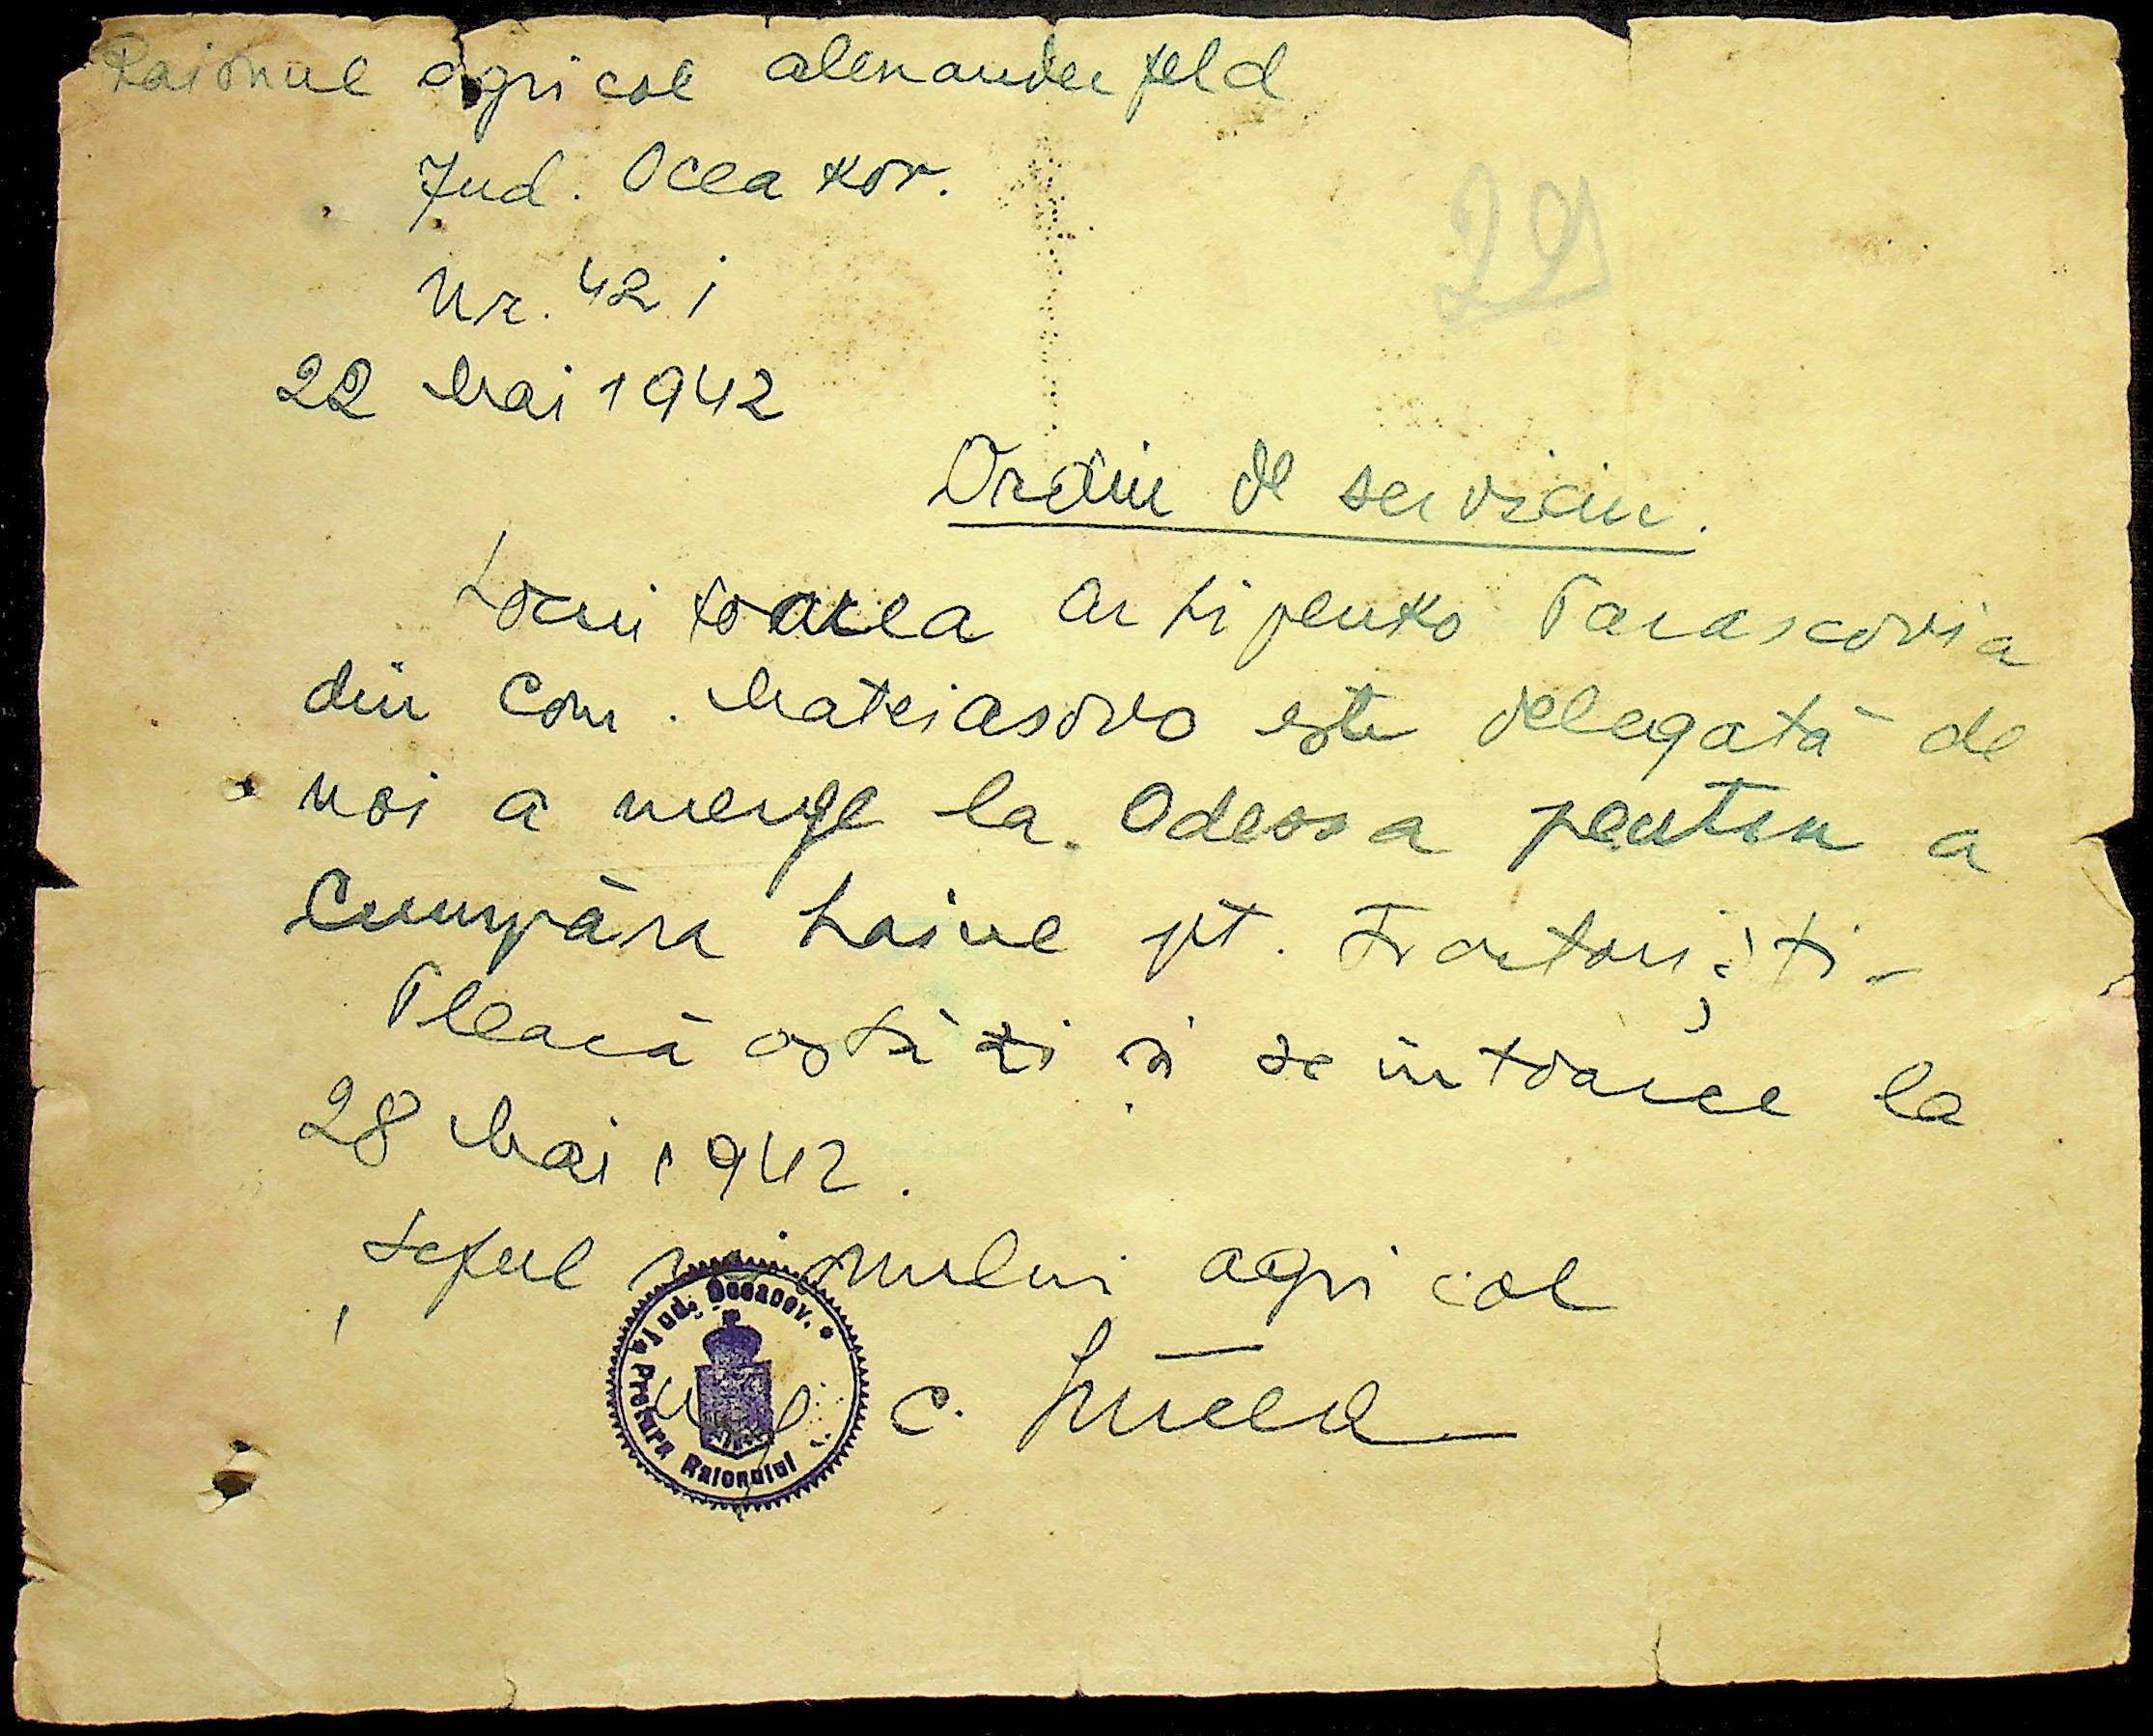 Raionul agricol Alexanderfeld
Jud. Oceakov.
Nr. 421
29
22 Mai 1942
Ordin de serviciu.
Locuitoarea Arhipenko Parascovia
din com. Mateiasovo este delegată de
noi a merge la Odessa pentru a
cumpăra haine pt. Tractoriști-
Pleacă astăzi și se întoarce la
28 Mai 1942.
Șeful raionului agricol
C.
Jud. Oceacov.
Pretura Raionului